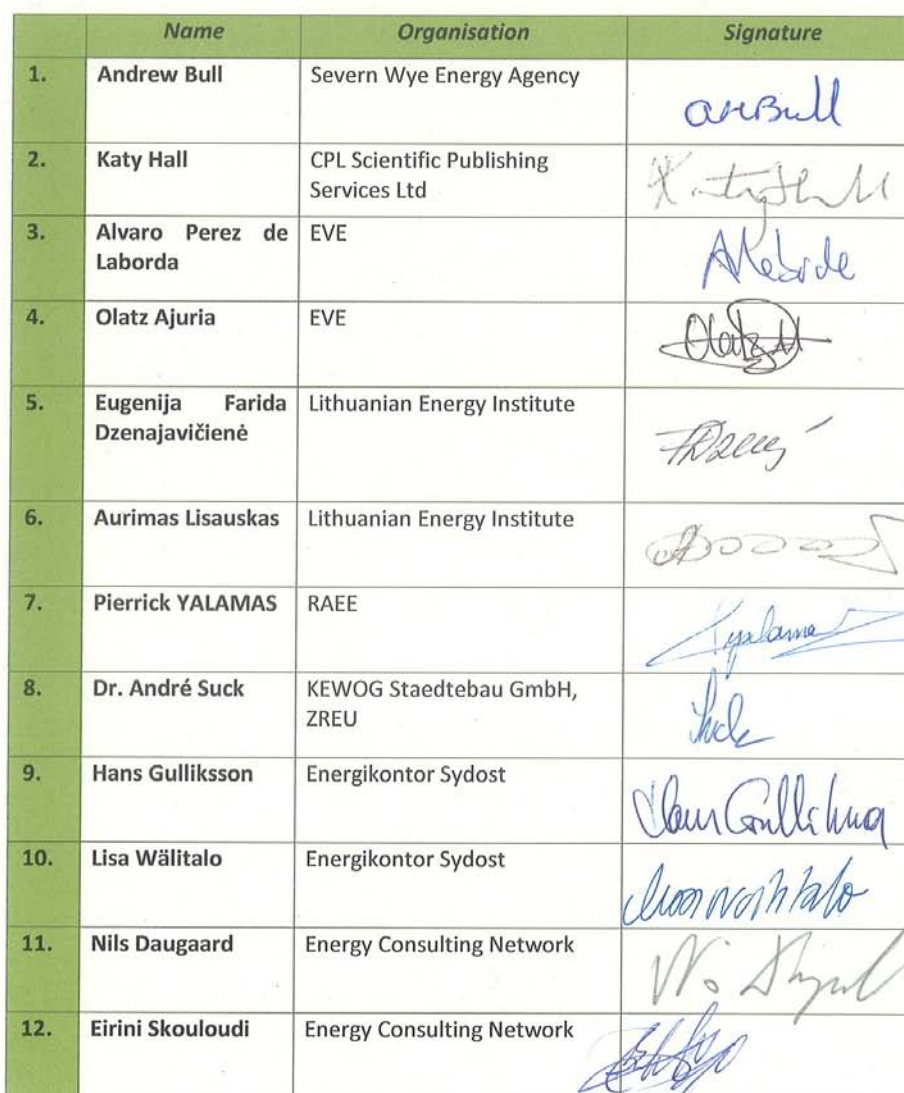 Name Organisation Signature
1. Andrew Bull Severn Wye Energy Agency
2. Katy Hall CPL Scientific Publishing
Services Ltd
3. Alvaro Perez de EVE
Laborda
4. Olatz Ajuria EVE
5. Eugenija Farida Lithuanian Energy Institute
Dzenajavičienė
6. Aurimas Lisauskas Lithuanian Energy Institute
7. Pierrick YALAMAS RAEE
8. Dr. André Suck KEWOG Staedtebau GmbH,
ZREU
9. Hans Gulliksson Energikontor Sydost
10. Lisa Wälitalo Energikontor Sydost
11. Nils Daugaard Energy Consulting Network
12. Eirini Skouloudi Energy Consulting Network